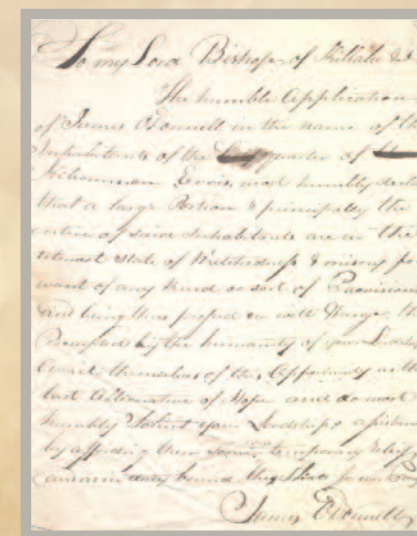 To my Lord Bishop of Killala &
The humble Application
of James O'Donnell in the name of th
Inhabitants of the quarter of
Erris, most humbly
that a large Portion & principally the
entire of said Inhabitants are in the
utmost State of Wretchedness & misery fo
want of any kind or sort of Provisions
and being thus pressed on with Hunger, th
Prompted by the humanity of your Lordsh
avail themselves of this Opportunity as th
last Alternative of Hope and do most
humbly Solicit your Lordships
by affording them some temporary relief
bound they
James O'Donnell